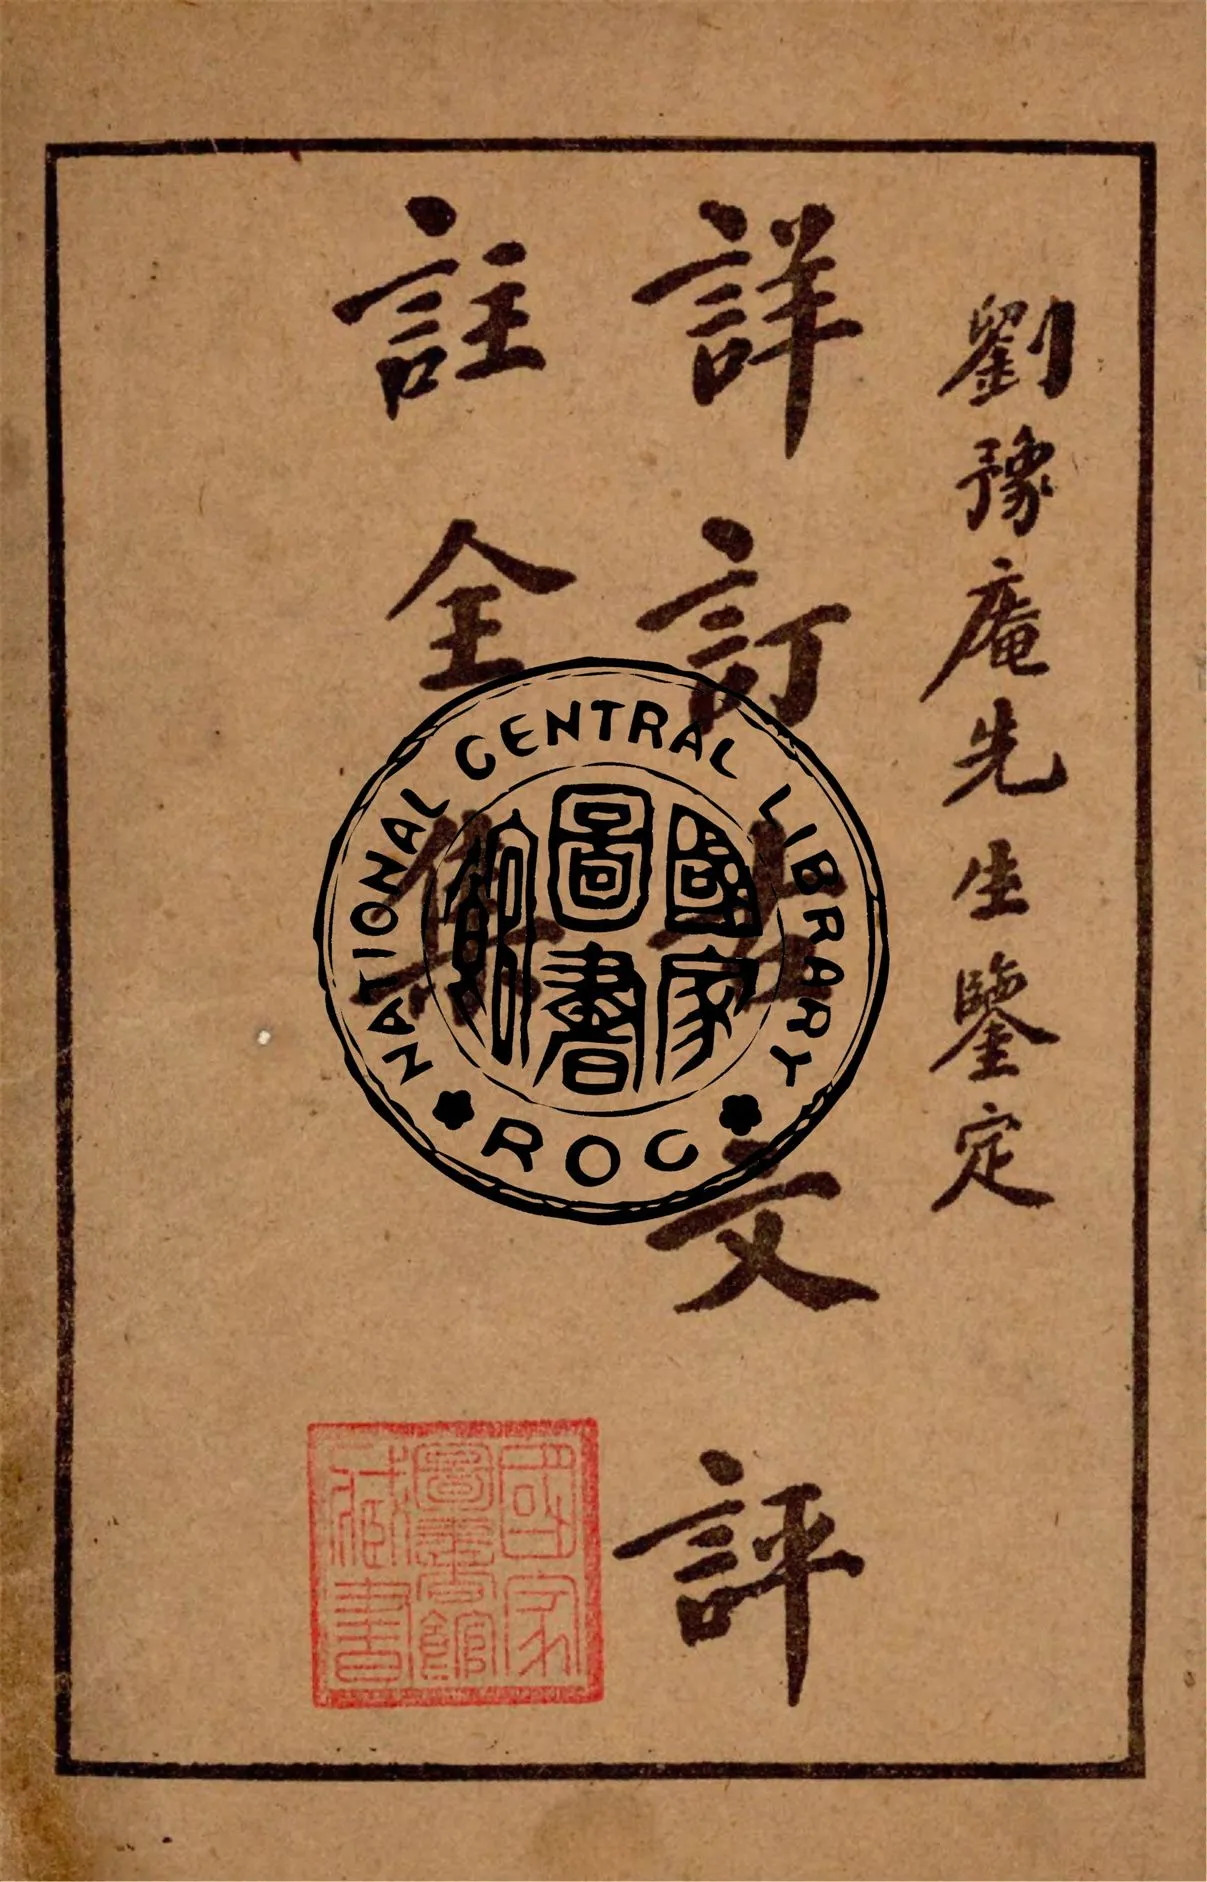 劉豫庵先生鑒定
詳訂古文評
註全集
NATIONAL CENTRAL LIBRARY
國家
圖書
館
ROC
國家
圖書館
藏書